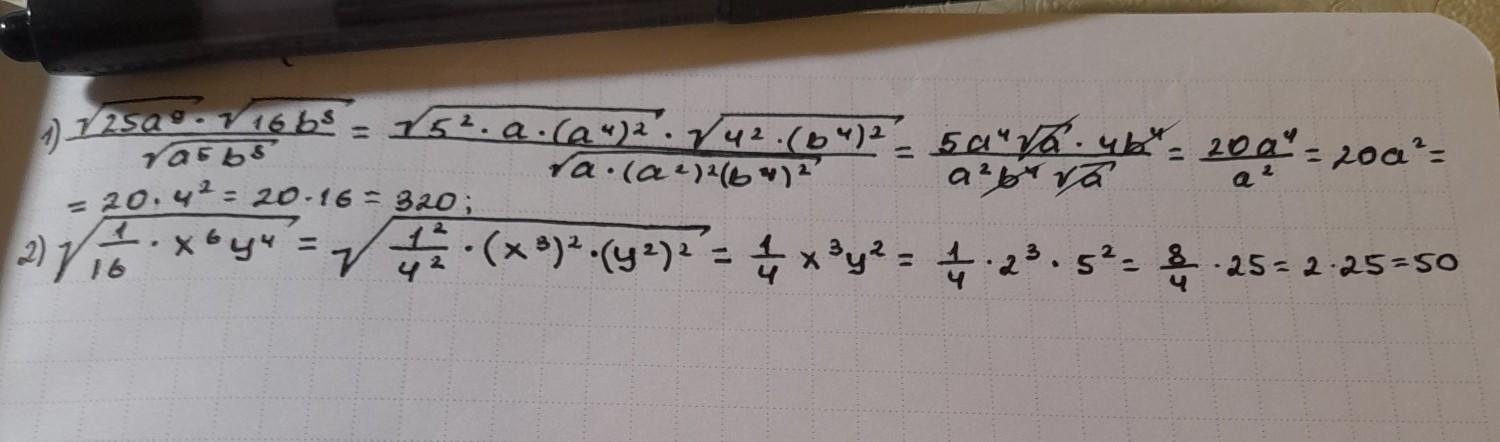 1) √25a⁹ · √16b⁸ / √a⁵b⁸ = √5² · a · (a⁴)² · √4² · (b⁴)² / √a · (a²)²(b⁴)² = 5a⁴√a · 4b⁴ / a²b⁴√a = 20a⁴ / a² = 20a² =
= 20 · 4² = 20 · 16 = 320;
2) √1/16 · x⁶y⁴ = √1²/4² · (x³)² · (y²)² = 1/4 x³y² = 1/4 · 2³ · 5² = 8/4 · 25 = 2 · 25 = 50